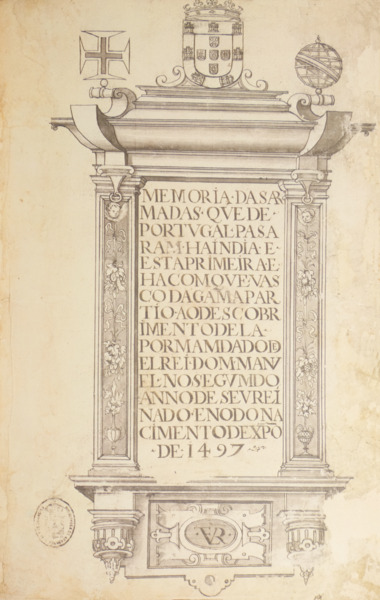 MEMORIA·DAS AR
MADAS·QVE DE·
PORTVGAL·PASA
RAM·HA INDIA·E·
ESTA PRIMEIRA E·
HA COM QVE·VAS
CO DA GAMA PAR
TIO·AO DESCOBR
IMENTO DE LA·
POR MAMDADO DE
EL REI·DOM MANV
EL·NO SEGVMDO
ANNO DE SEV REI
NADO·E NO DO NA
CIMENTO DE XPŌ
·DE·1497·
·VR·